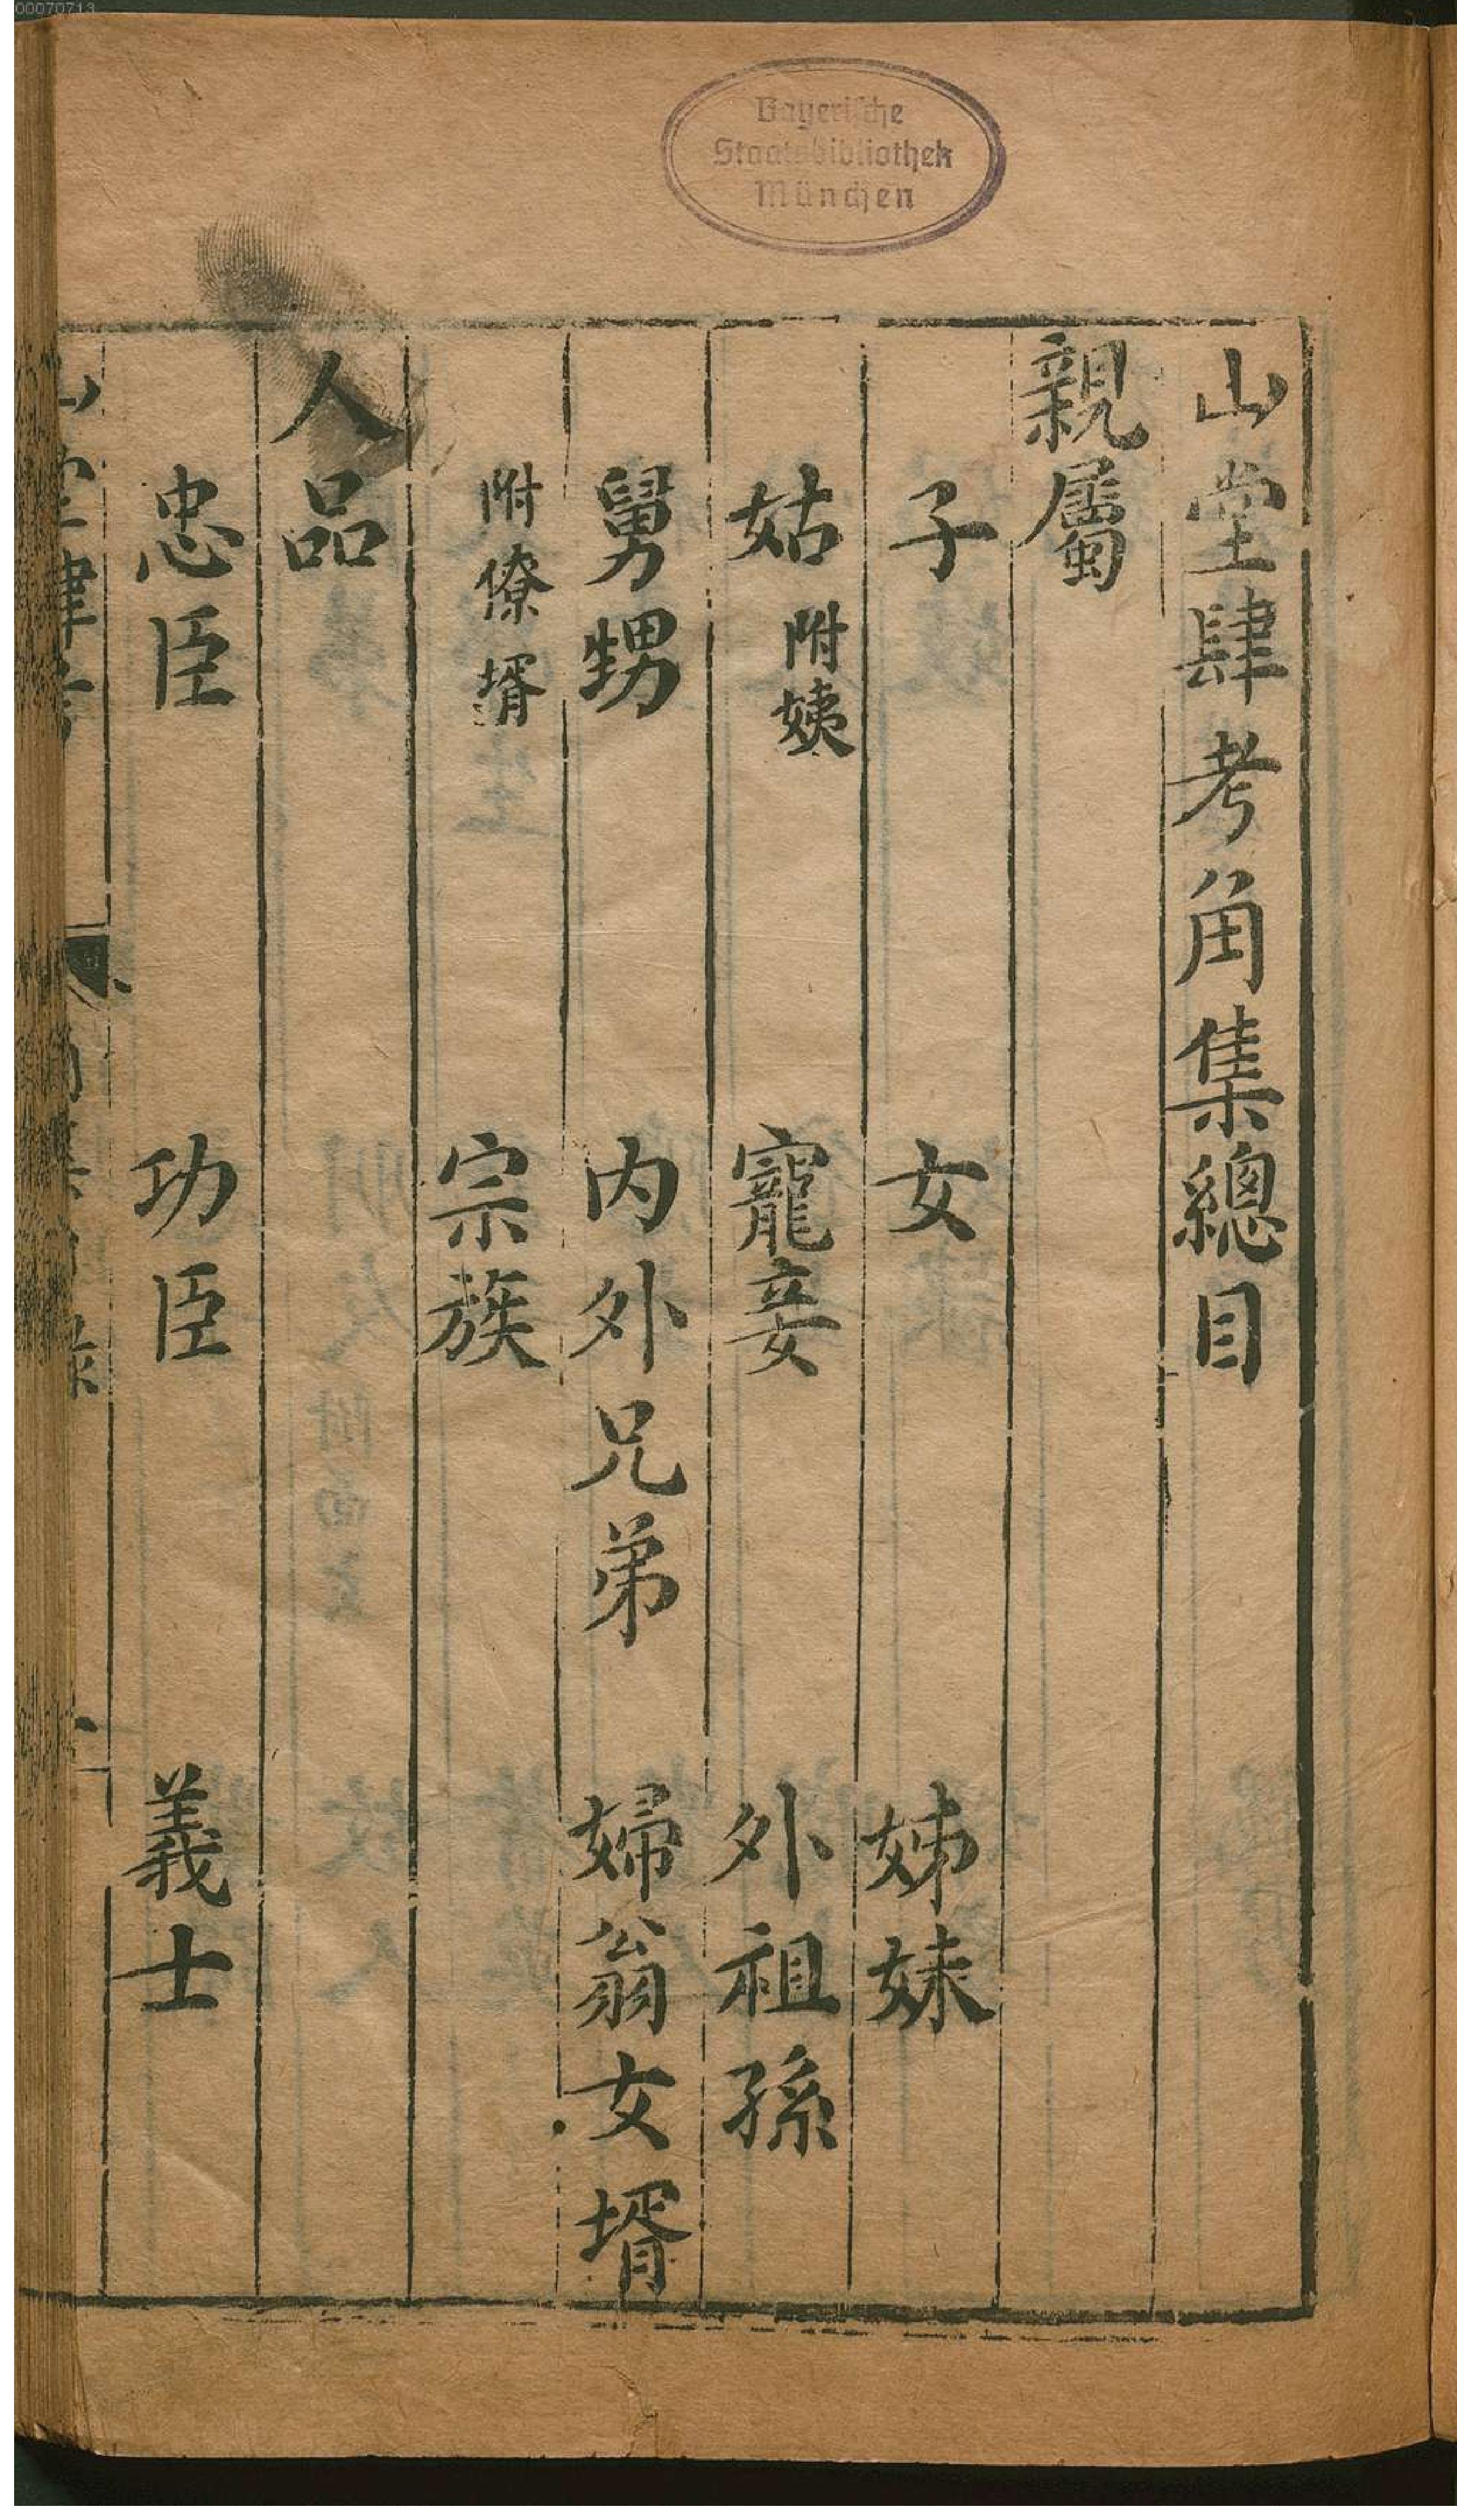 00070713
Bayerische
Staatsbibliothek
München
山堂肆考角集總目
親屬
子 女 姊妹
姑 附姨 寵妾 外祖孫
舅甥 内外兄弟 婦翁女壻
附僚壻 宗族
人品
忠臣 功臣 義士